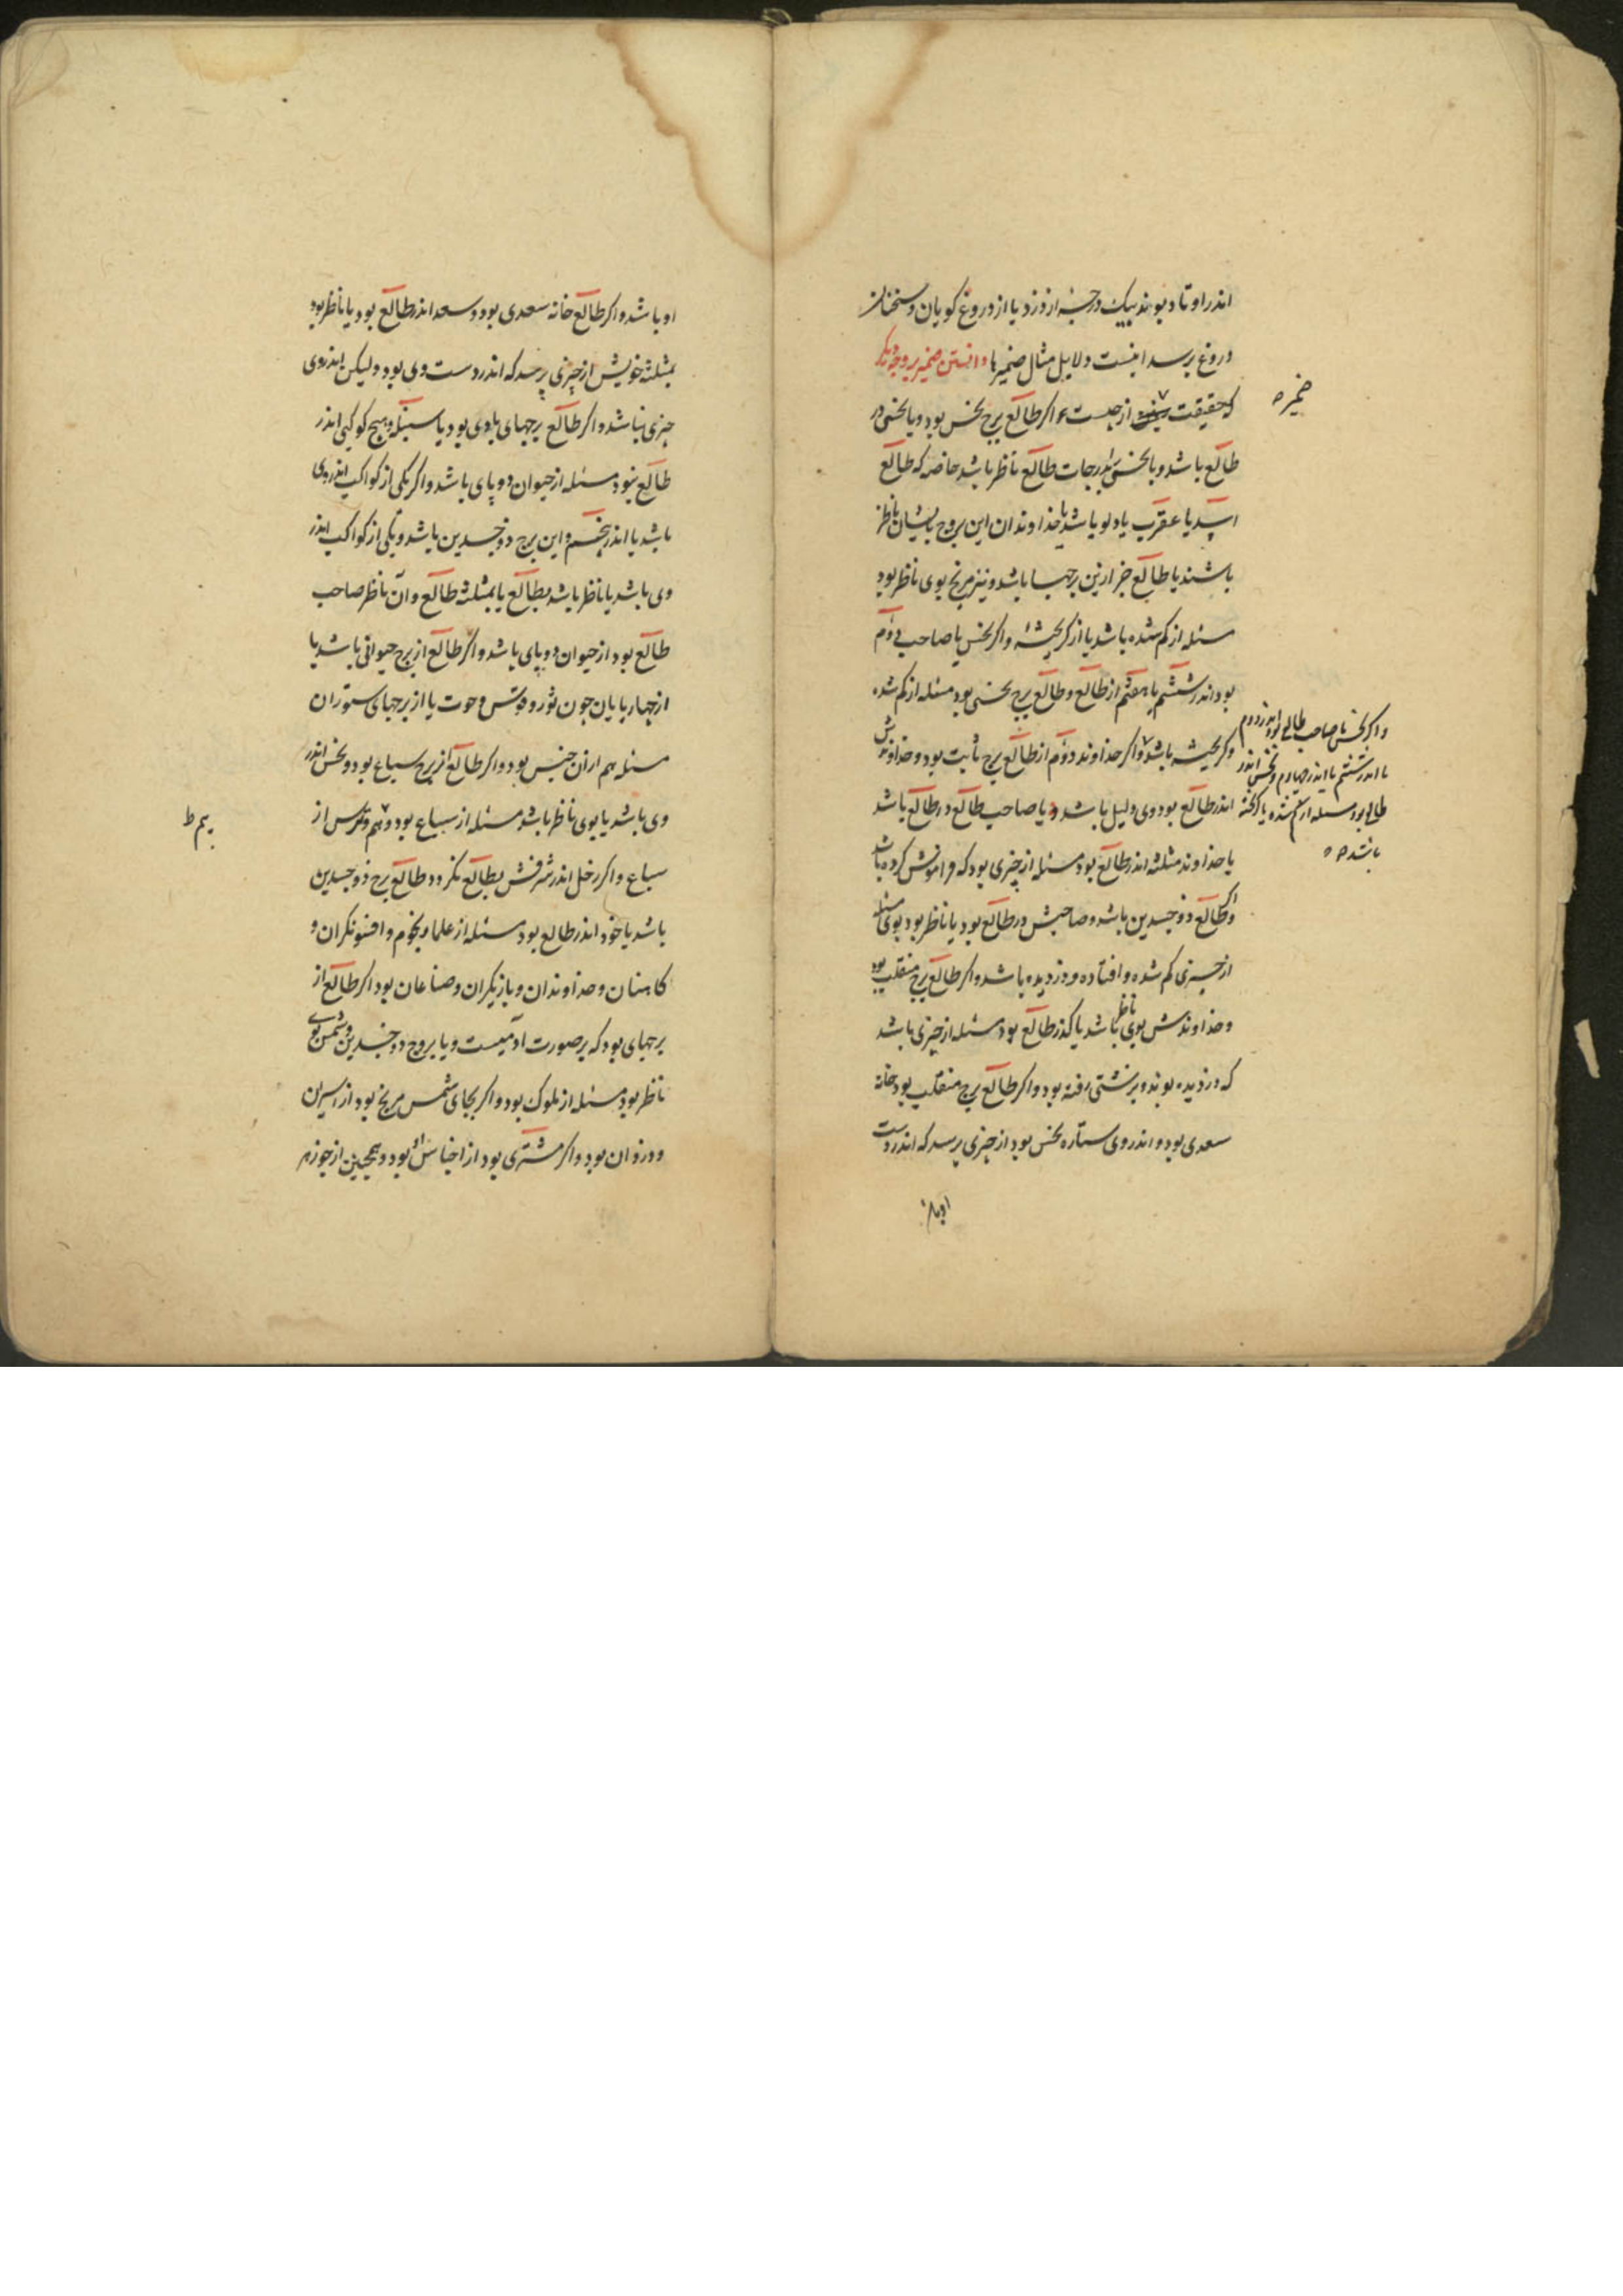 اندر اوتاد بوند بیک درجه از دزد یا از دروغ کویان و سخنان
دروغ برسد اینست دلایل مثال ضمیرها دانستن ضمیر بروجه دیکر
که حقیقت از چیست اکر طالع برج نحس بود و یا نحسی در
طالع باشد و یا نحس بدرجات طالع ناظر باشد خاصه که طالع
اسد یا عقرب یا دلو باشد یا خداوندان این بروج بایشان ناظر
باشند یا طالع جز ازین برجها باشد و نیز مریخ بوی ناظر بود
مسئله از کم شده باشد یا از کریخته واکر نحس با صاحب دوم
بود اندر ششم یا هفتم از طالع و طالع برج نحسی بود مسئله از کم شده
و کریخته باشد واکر خداوند دوم از طالع برج ثابت بود و خداوندش
اندر طالع بود وی دلیل باشد و یا صاحب طالع در طالع باشد
یا خداوند مثلثه اندر طالع بود مسئله از چیزی بود که فراموش کرده باشد
واکر طالع ذوجسدین باشد و صاحبش در طالع بود یا ناظر بود بوی مسئله
از چیزی کم شده و افتاده و دزدیده باشد واکر طالع برج منقلب بود
و خداوندش بوی ناظر باشد یا اندر طالع بود مسئله از چیزی باشد
که دزدیده بوند و برشتی رفته بود واکر طالع برج منقلب بود خانه
سعدی بود و اندر وی ستاره نحس بود از چیزی پرسد که اندر دست
او باشد
ضمیر ه
واکر نحس با صاحب طالع بود اندر دوم
یا اندر ششم یا اندر چهارم و نحس اندر
طالع بود مسئله از کم شده یا کریخته
باشد ه ه
او باشد واکر طالع خانه سعدی بود و سعد اندر طالع بود یا ناظر بود
بمثلثه خویش از چیزی پرسد که اندر دست وی بود ولیکن اندر وی
چیزی نباشد واکر طالع برجهای بادی بود یا سنبله و هیچ کوکبی اندر
طالع نبود مسئله از حیوان دو پای باشد واکر یکی از کواکب اندر وی
باشد یا اندر پنجم و این برج ذوجسدین باشد و یکی از کواکب اندر
وی باشد یا ناظر باشد بطالع یا بمثلثه طالع و آن ناظر صاحب
طالع بود از حیوان دو پای باشد واکر طالع از برج حیوانی باشد یا
از چهار پایان چون ثور و قوس و حوت یا از برجهای ستوران
مسئله هم از آن جنس بود واکر طالع از برج سباع بود و نحس اندر
وی باشد یا بوی ناظر باشد مسئله از سباع بود و هم و ترس از
سباع واکر زحل اندر شرفش بطالع نکرد و طالع برج ذوجسدین
باشد یا خود اندر طالع بود مسئله از علما و نجوم و افسونکران و
کاهنان و خداوندان و بازیکران و صناعان بود اکر طالع از
برجهای بود که بر صورت آدمیست و یا بروج ذوجسدین و شمس بوی
ناظر بود مسئله از ملوک بود واکر بجای شمس مریخ بود از اسیران
و دزدان بود واکر مشتری بود از اجناس بود و همچنین از جوزهر
بیم ط